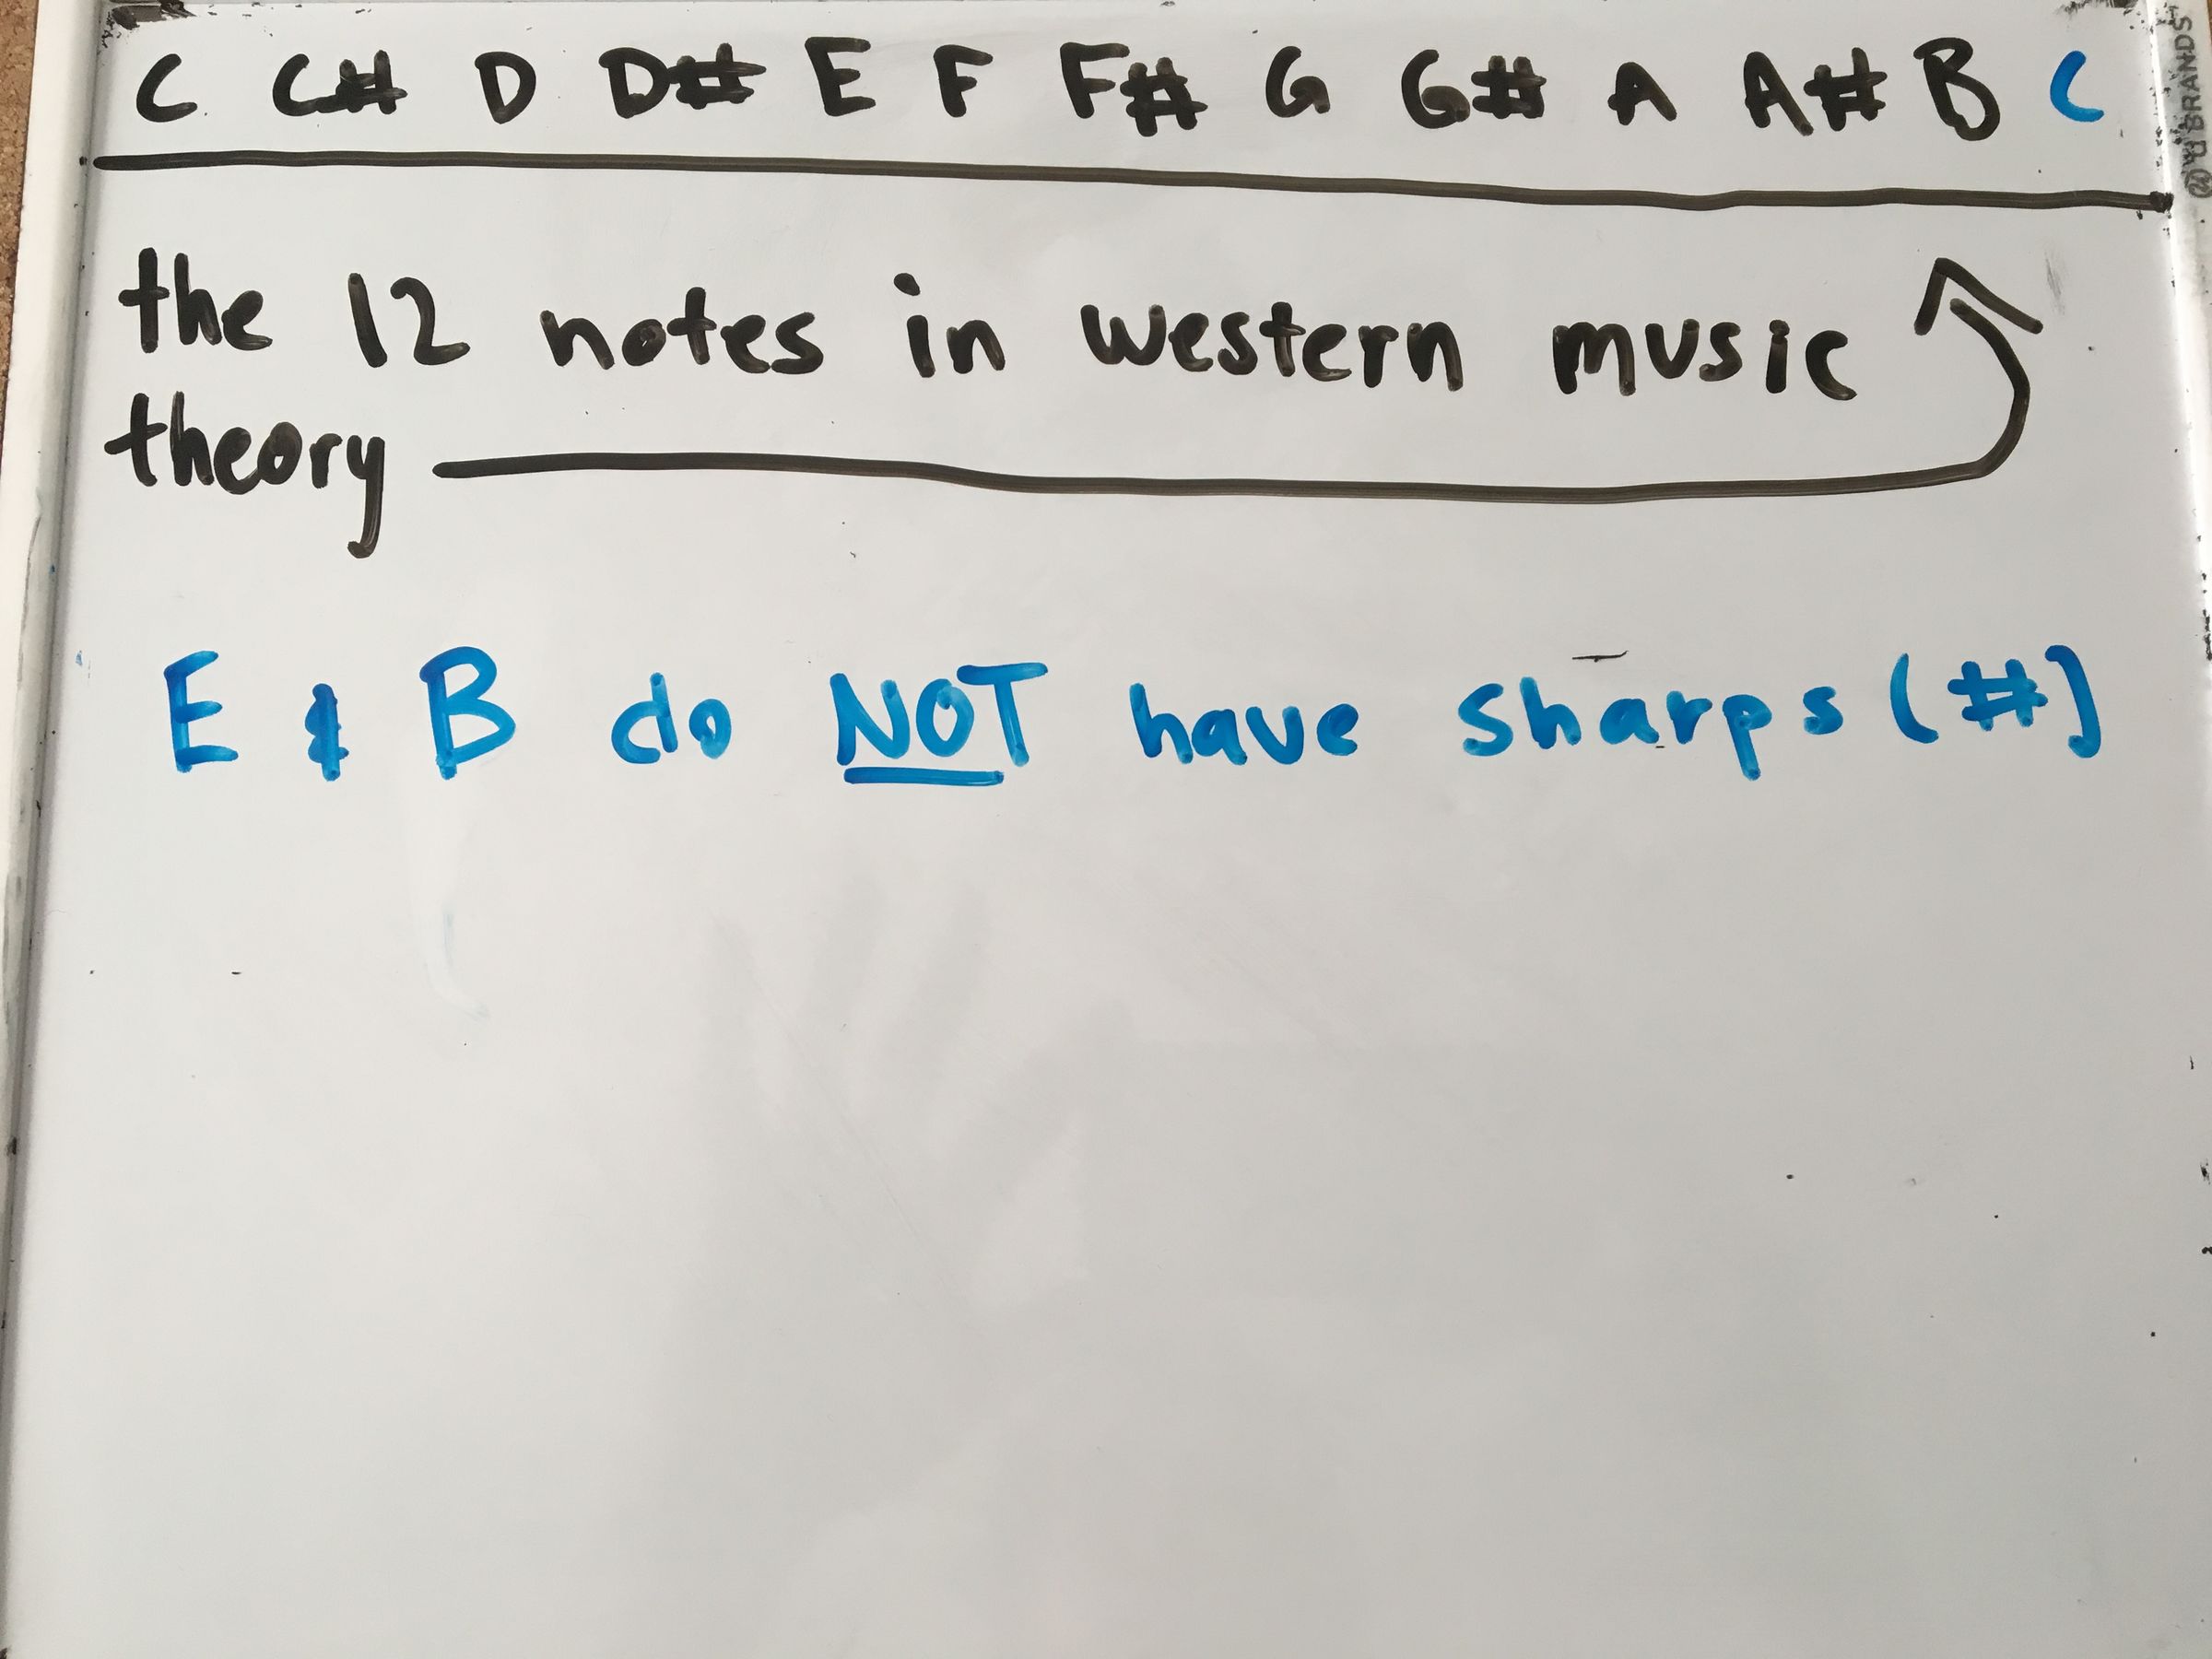 C C# D D# E F F# G G# A A# B C
the 12 notes in western music
theory
E & B do NOT have sharps (#)
U BRANDS